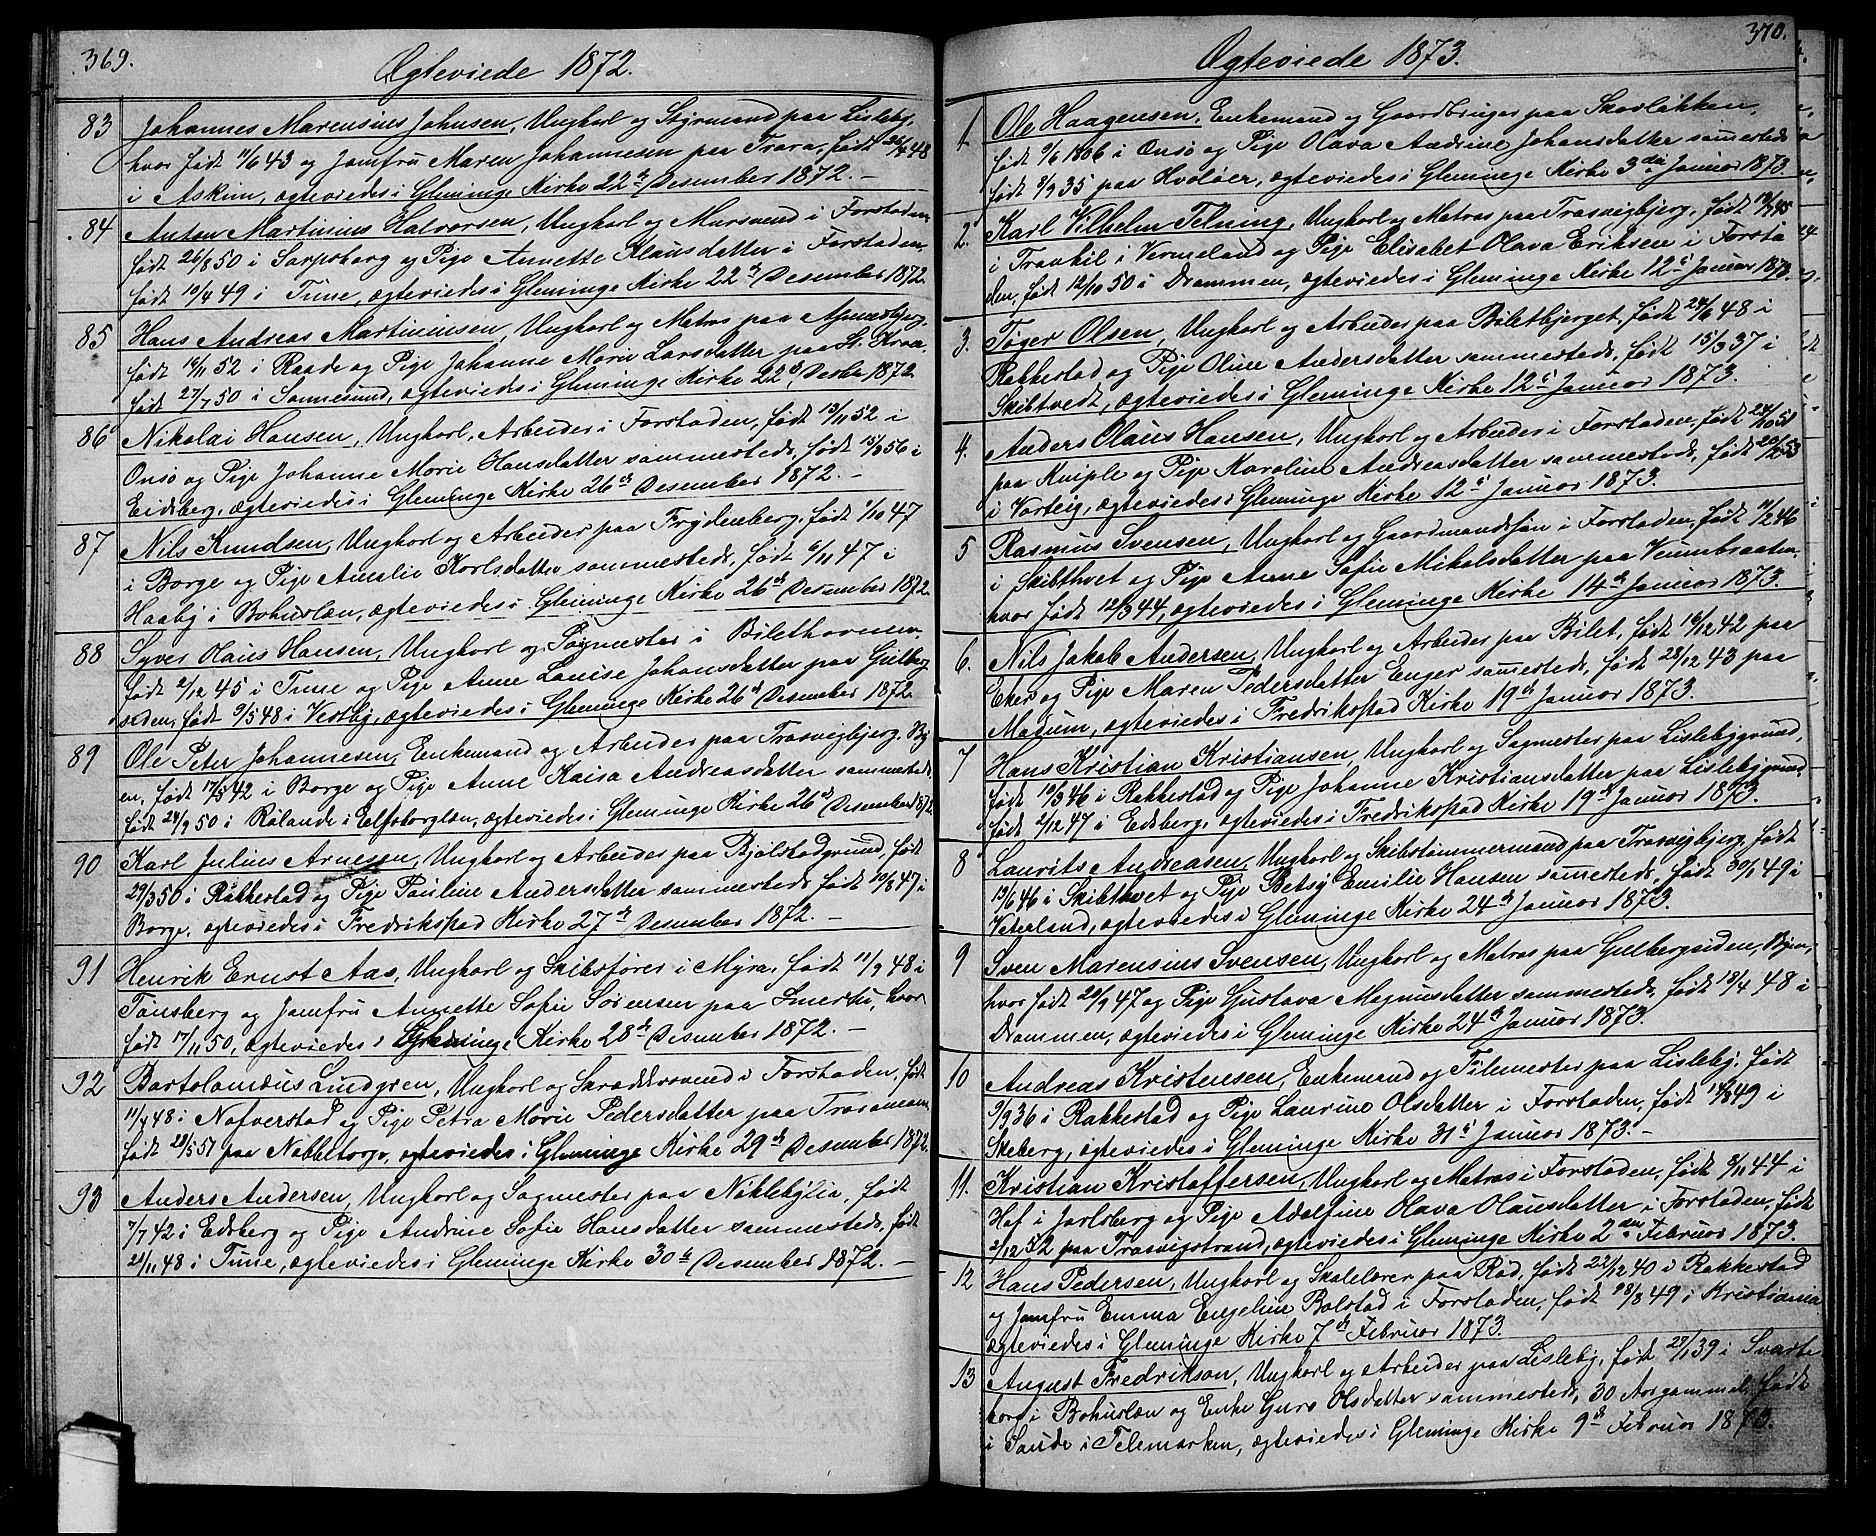 369.
Ægteviede 1872.
83 Johannes Marensius Johnsen, Ungkarl og Styrmand paa Lisleby,
hvor født 11/6 43 og Jomfru Maren Johannesen paa Trara, født 48
i Askim, ægteviedes i Gleminge Kirke 22d Desember 1872. —
84 Anton Martinius Halvorsen, Ungkarl og Mursvend i Forstaden,
født 26/8 50 i Sarpsborg og Pige Annette Klausdatter i Forstaden,
født 10/4 49 i Tune, ægteviedes i Gleminge Kirke 22d Desember 1872.
85 Hans Andreas Martiniusen, Ungkarl og Matros paa
født 19/11 52 i Raade og Pige Johanne Marie Larsdatter paa St. Kraa,
født 27/7 50 i Sannesund, ægteviedes i Gleminge Kirke 22d, Desbr 1872.
86 Nikolai Hansen, Ungkarl, Arbeider i Forstaden, født 13/11 52 i
Onsø og Pige Johanne Marie Hansdatter sammesteds, født 15/8 56 i
Eidsberg, ægteviedes i Gleminge Kirke 26d Desember 1872. —
87 Nils Knudsen, Ungkarl og Arbeider paa Frydenberg, født 1/10 47
i Borge og Pige Amalie Karlsdatter sammesteds, født 6/11 47 i
Haaby i Bohuslæn, ægteviedes i Gleminge Kirke 26d Desember 1872.
88 Syver Olaus Hansen, Ungkarl og Søgmester i Bilethavnen,
født 2/12 45 i Tune og Pige Anne Louise Johansdatter paa Gulberg
siden, født 9/5 48 i Vestby, ægteviedes i Gleminge Kirke 26d Desember 1872.
89 Ole Peter Johannesen, Enkemand og Arbeider paa Trosvigbjerg, By
en, født 17/5 42 i Borge og Pige Anne Kaisa Andreasdatter sammesteds
født 24/9 50 i Rølanda i Elfsborglæn, ægteviedes i Gleminge Kirke 26d Desember 1872
90 Karl Julius Arnesen, Ungkarl og Arbeider paa Bjølstadgrund, født
29/3 50 i Rakkestad og Pige Pauline Andersdatter sammesteds født 10/8 47 i
Borge, ægteviedes i Fredrikstad Kirke 27d Desember 1872. —
91 Henrik Ernst Aas, Ungkarl og Skibsfører i Myra, født 11/9 48 i
Tønsberg og Jomfru Annette Sofie Sørensen paa Smertu, hvor
født 17/11 50, ægteviedes i Gleminge Kirke 28d Desember 1872. —
92 Bartolomæus Lindgren, Ungkarl og Skræddersvend i Forstaden, født
11/7 48 i Nafverstad og Pige Petra Marie Pedersdatter paa
født 29/5 51 paa Nabbetorp, ægteviedes i Gleminge Kirke 29d Desember 1872.
93 Anders Andersen, Ungkarl og Sagmester paa Nøklebylia, født
7/7 42 i Edsberg og Pige Andrine Sofie Hansdatter sammesteds, født
21/11 48 i Tune, ægteviedes i Gleminge Kirke 30d Desember 1872. —
370.
Ægteviede 1873.
1 Ole Haagensen, Enkemand og Gaardbruger paa Skovløkken,
født 9/6 1806 i Onsø og Pige Olava Andrine Johansdatter sammesteds
født 8/9 35 paa Hvaløer, ægteviedes i Gleminge Kirke 3die Januar 1873.
2. Karl Vilhelm Telning, Ungkarl og Matros paa Trosvigbjerg, født 45
i Trankil i Vermeland og Pige Elisabet Olava Eriksen i Forsta
den, født 12/10 50 i Drammen, ægteviedes i Gleminge Kirke 12t Januar 1873.
3. Tøger Olsen, Ungkarl og Arbeider paa Biletbjerget, født 24/6 48 i
Rakkestad og Pige Oline Andersdatter sammesteds, født 15/3 37 i
Skibtvedt, ægteviedes i Gleminge Kirke 12t Januar 1873.
4. Anders Olaus Hansen, Ungkarl og Arbeider i Forstaden, født 24/10 51
paa Kniple og Pige Karoline Andreasdatter sammesteds, født 20/12 53
i Varteig, ægteviedes i Gleminge Kirke 12t Januar 1873.
5 Rasmus Svensen, Ungkarl og Gaardmandssøn i Forstaden, født 11/2 46
i Skibthvet og Pige Anne Sofie Mikalsdatter paa Veumbraaten,
hvor født 12/3 44, ægteviedes i Gleminge Kirke 14d Januar 1873.
6. Nils Jakob Andersen, Ungkarl og Arbeider paa Bilet, født 16/12 42 paa
Eker og Pige Maren Pedersdatter Enger sammesteds, født 28/12 43 paa
Modum, ægteviedes i Fredrikstad Kirke 19d Januar 1873.
7 Hans Kristian Kristiansen, Ungkarl og Sagmester paa Lislebygrund,
født 10/3 46 i Rakkestad og Pige Johanne Kristiansdatter paa Lislebygrund,
født 2/12 47 i Edsberg, ægteviedes i Fredrikstad Kirke 19d Januar 1873.
8 Laurits Andreasen, Ungkarl og Skibstømmermand paa Trosvigbjerg, født
19/6 46 i Skibthvet og Pige Betsy Emilie Hansen sammesteds, født 30/1 49 i
Veterland, ægteviedes i Gleminge Kirke 24d Januar 1873.
9 Sven Marensius Svensen, Ungkarl og Matros paa Gulbergsiden, Byen,
hvor født 20/9 47 og Pige Gustava Magnusdatter sammesteds, født 18/4 48 i
Drammen, ægteviedes i Gleminge Kirke 24d Januar 1873.
10 Andreas Kristensen, Enkemand og Filemester paa Lisleby, født
9/9 36 i Rakkestad og Pige Laurine Olsdatter i Forstaden, født 14/8 49 i
Skeberg, ægteviedes i Gleminge Kirke 31t Januar 1873. —
11. Kristian Kristoffersen, Ungkarl og Matros i Forstaden, født 8/11 44 i
Hof i Jarlsberg og Pige Adolfine Olava Olausdatter i Forstaden, født
2/12 52 paa Trosvigstrand, ægteviedes i Gleminge Kirke 2den Februar 1873.
12 Hans Pedersen, Ungkarl og Skolelærer paa Rød, født 22/12 40 i Rakkestad
og Jomfru Emma Engeline Bolstad i Forstaden, født 28/8 49 i Kristiania
ægteviedes i Gleminge Kirke 7d Februar 1873.
13 August Fredriksen, Ungkarl og Arbeider paa Lisleby, født 29/1 39 i Svarte
borg i Bohuslæn og Enke Guro Olsdatter sammesteds, 30 Aar gammel, født
i Saude i Telemarken, ægteviedes i Gleminge Kirke 9d Februar 1873.